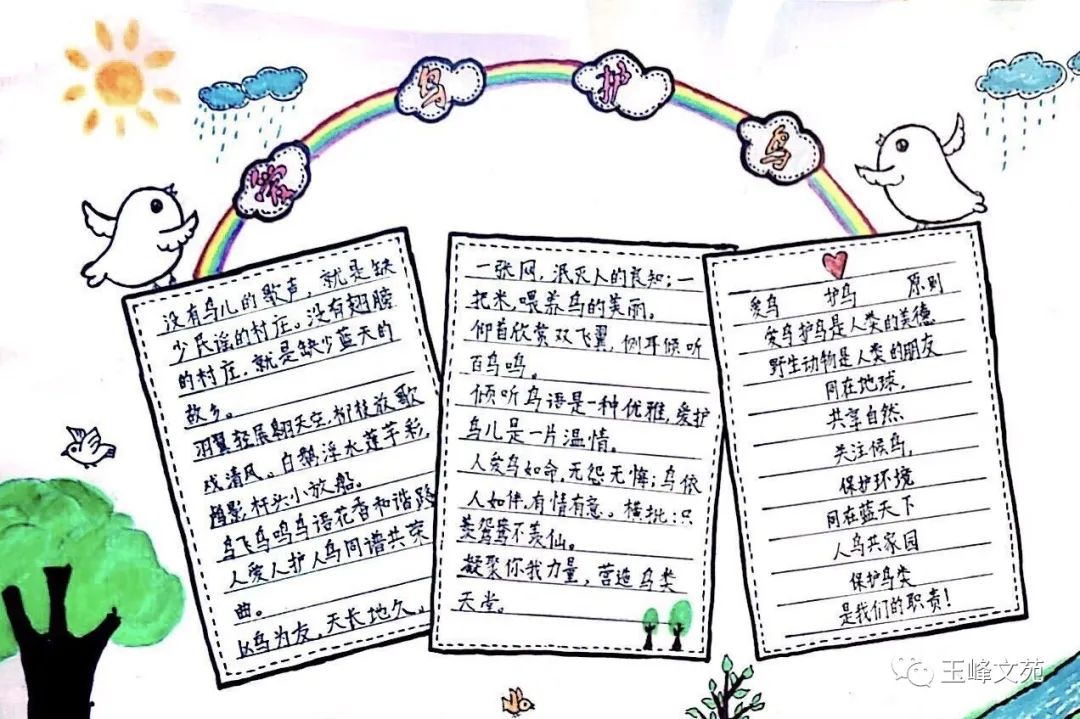 爱鸟护鸟
没有鸟儿的歌声，就是缺
少民谣的村庄。没有翅膀
的村庄，就是缺少蓝天的
故乡。
羽翼轻展翱天空,柳枝放歌
戏清风。白鹅浮水莲芋彩,
影杆头小放船。
鸟飞鸟鸣鸟语花香和谐路
人爱人护人鸟同谱共荣
曲。
以鸟为友，天长地久。
一张网，泯灭人的良知；一
把米，喂养鸟的美丽。
仰首欣赏双飞翼，侧耳倾听
百鸟鸣。
倾听鸟语是一种优雅，爱护
鸟儿是一片温情。
人爱鸟如命，无怨无悔；鸟依
人如伴，有情有意。横批：只
羡鸳鸯不羡仙。
凝聚你我力量，营造鸟类
天堂。
爱鸟 护鸟 原则
爱鸟护鸟是人类的美德
野生动物是人类的朋友
同在地球，
共享自然
关注候鸟，
保护环境
同在蓝天下
人鸟共家园
保护鸟类
是我们的职责！
玉峰文苑